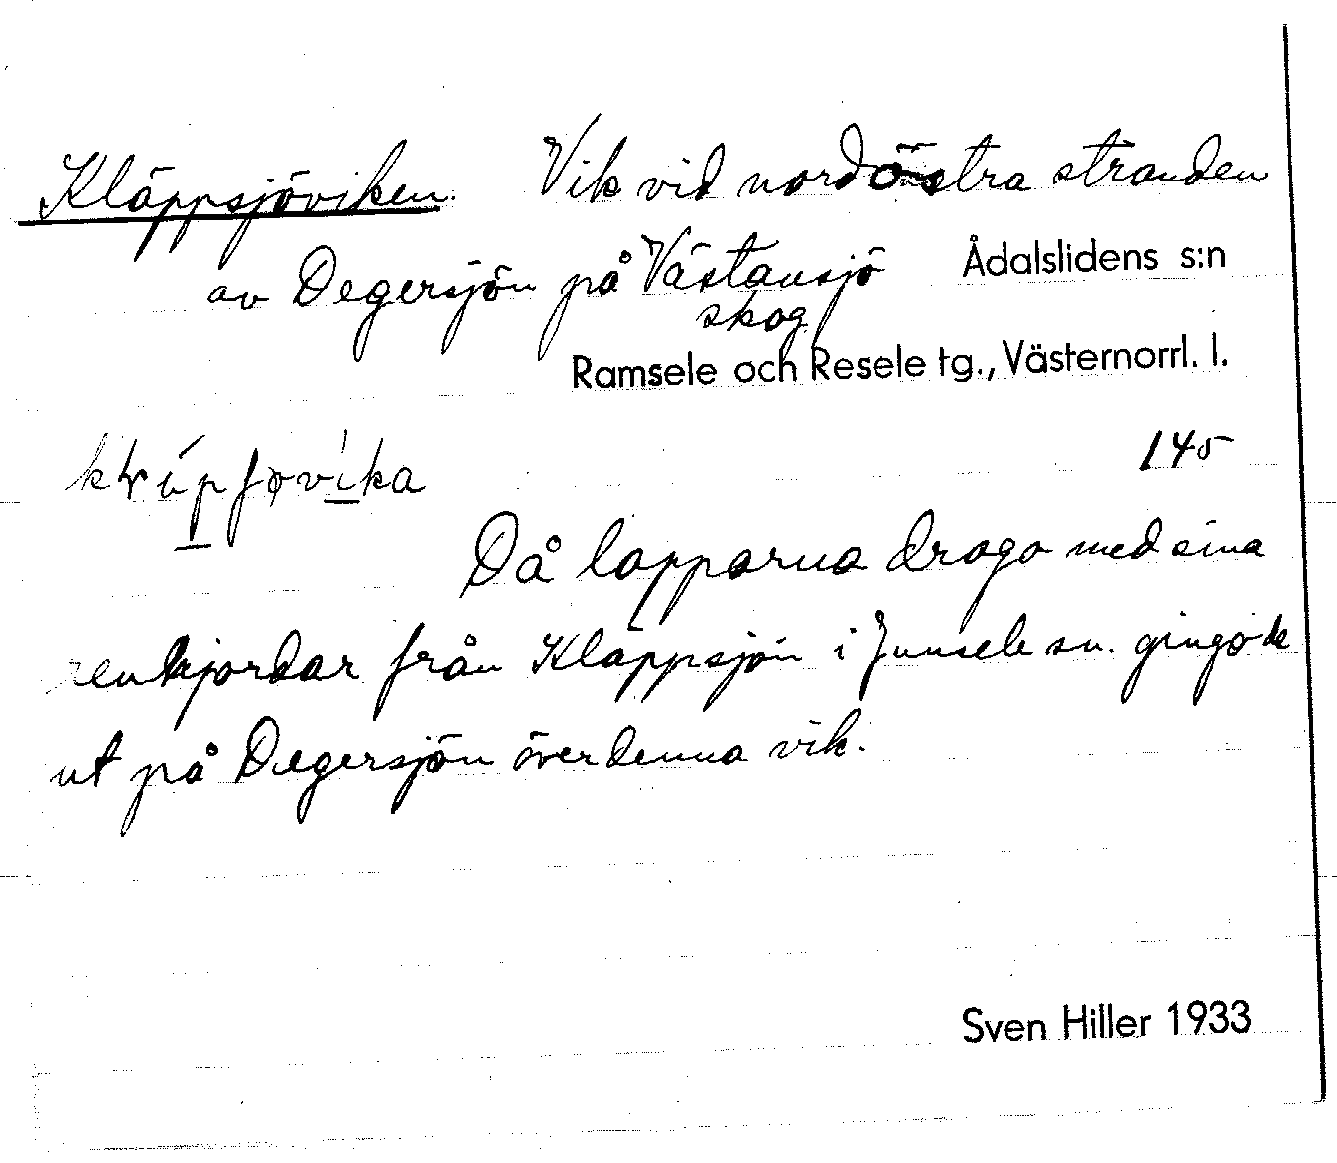 Kläppsjöviken. Vik vid nordöstra stranden
av Degersjön på Västansjö Ådalslidens s:n
skog
Ramsele och Resele tg., Västernorrl. l.
145
Då lapparna drogo med sina
renhjordar från Kläppsjön i Junsele sn. gingo de
ut på Degersjön över denna vik.
Sven Hiller 1933